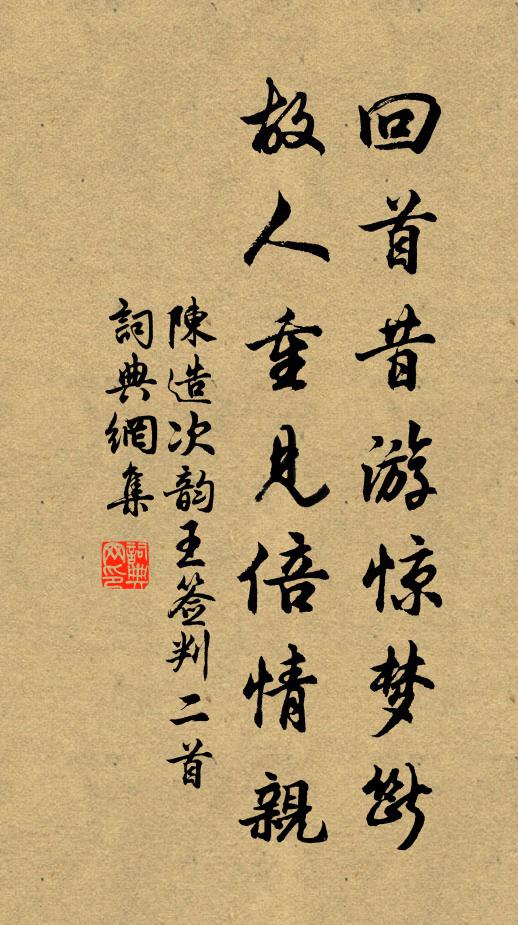 回首昔游惊梦断
故人重见倍情親
陳造次韵王签判二首
詞典網集
詞典網印